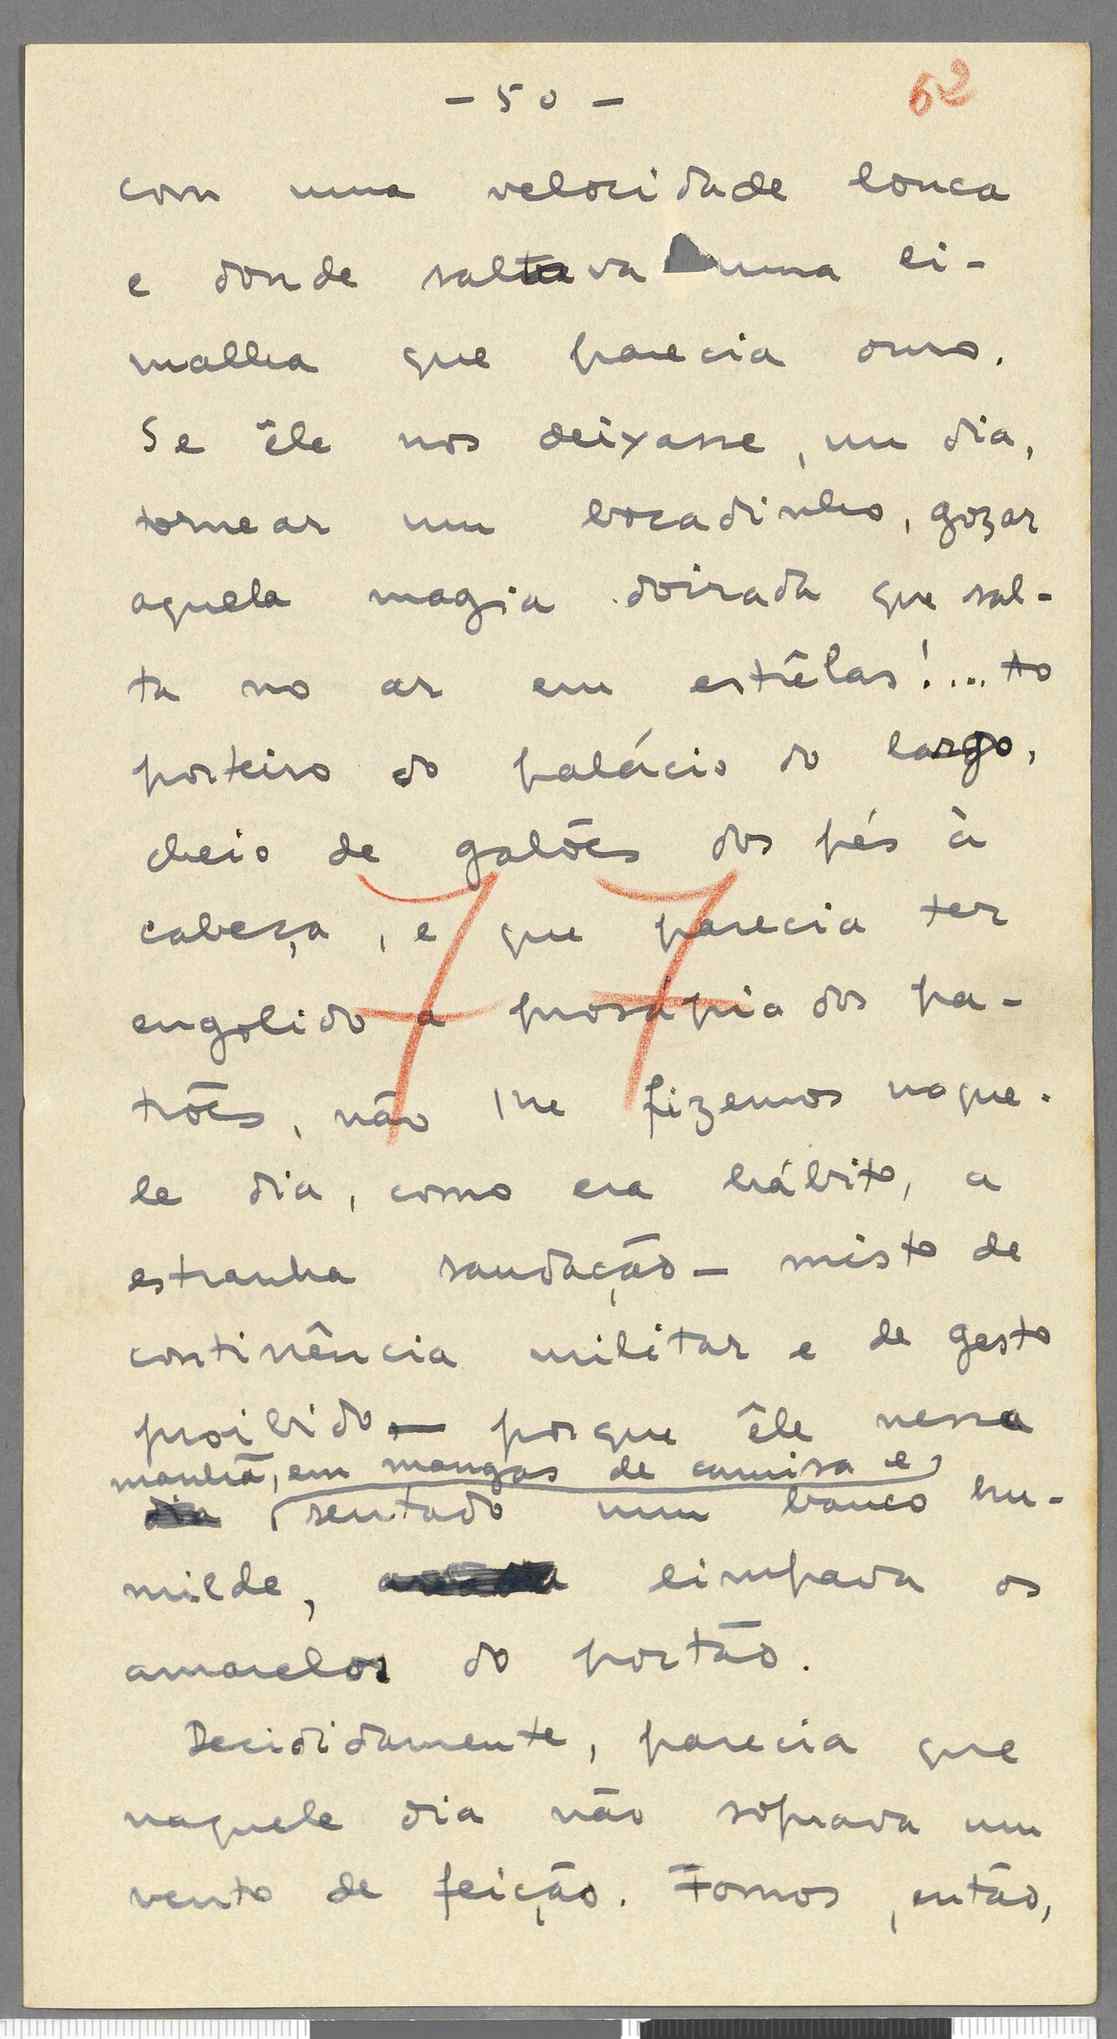 - 50 -
62
com uma velocidade louca
e donde saltava uma li-
malha que parecia ouro.
Se êle nos deixasse, um dia,
tornear um bocadinho, gozar
aquela magia doirada que sal-
ta no ar em estrêlas!... Ao
porteiro do palácio do largo,
cheio de galões dos pés à
cabeça, e que parecia ter
engolido a prosápia dos pa-
trões, não lhe fizemos naque-
le dia, como era hábito, a
estranha saudação - misto de
continência militar e de gesto
proibido - porque êle nessa
manhã, em mangas de camisa e
dia sentado num banco hu-
milde, limpava os
amarelos do portão.
Decididamente, parecia que
naquele dia não soprava um
vento de feição. Fomos, então,
77